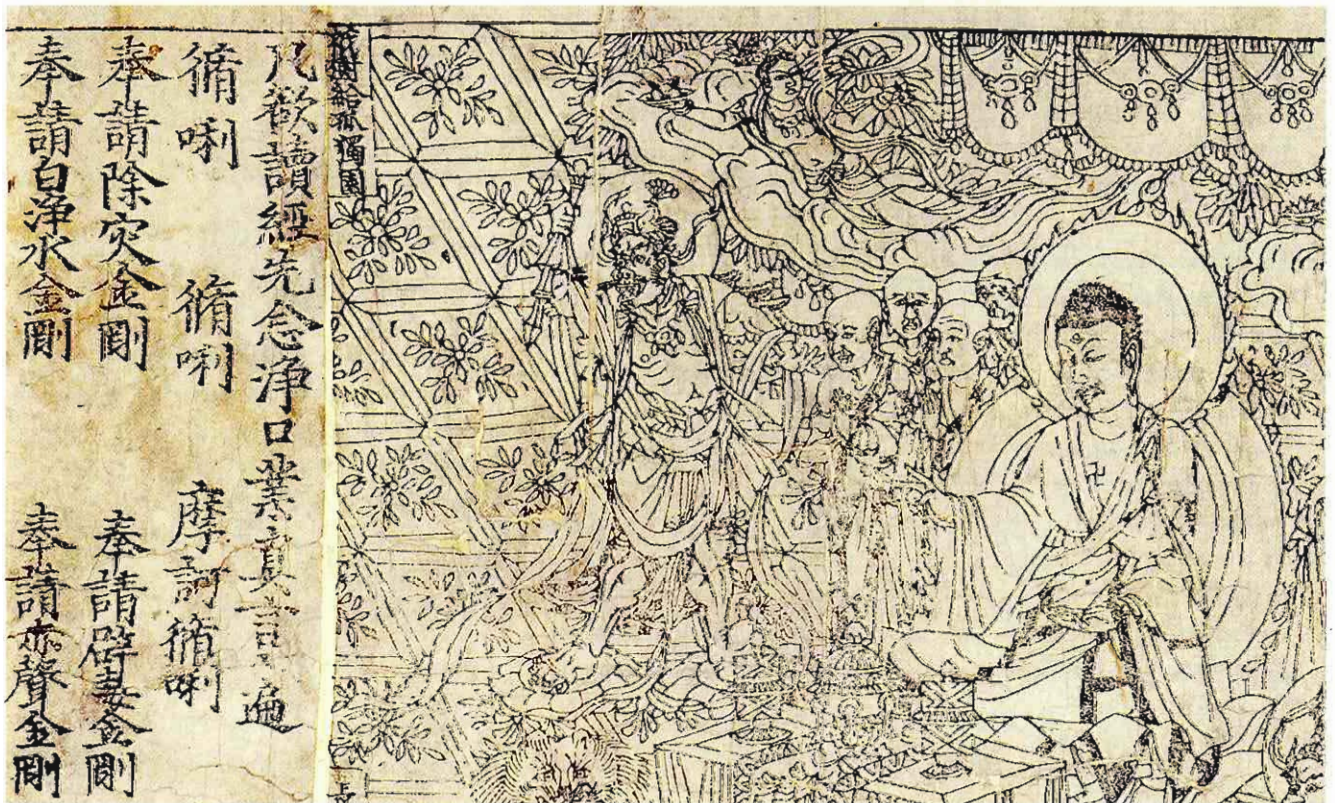 祇樹給孤獨園
凡欲讀經先念浄口業真言一遍
脩唎　脩唎　摩訶脩唎
奉請除灾金剛　奉請辟毒金剛
奉請白浄水金剛　奉請赤聲金剛
長